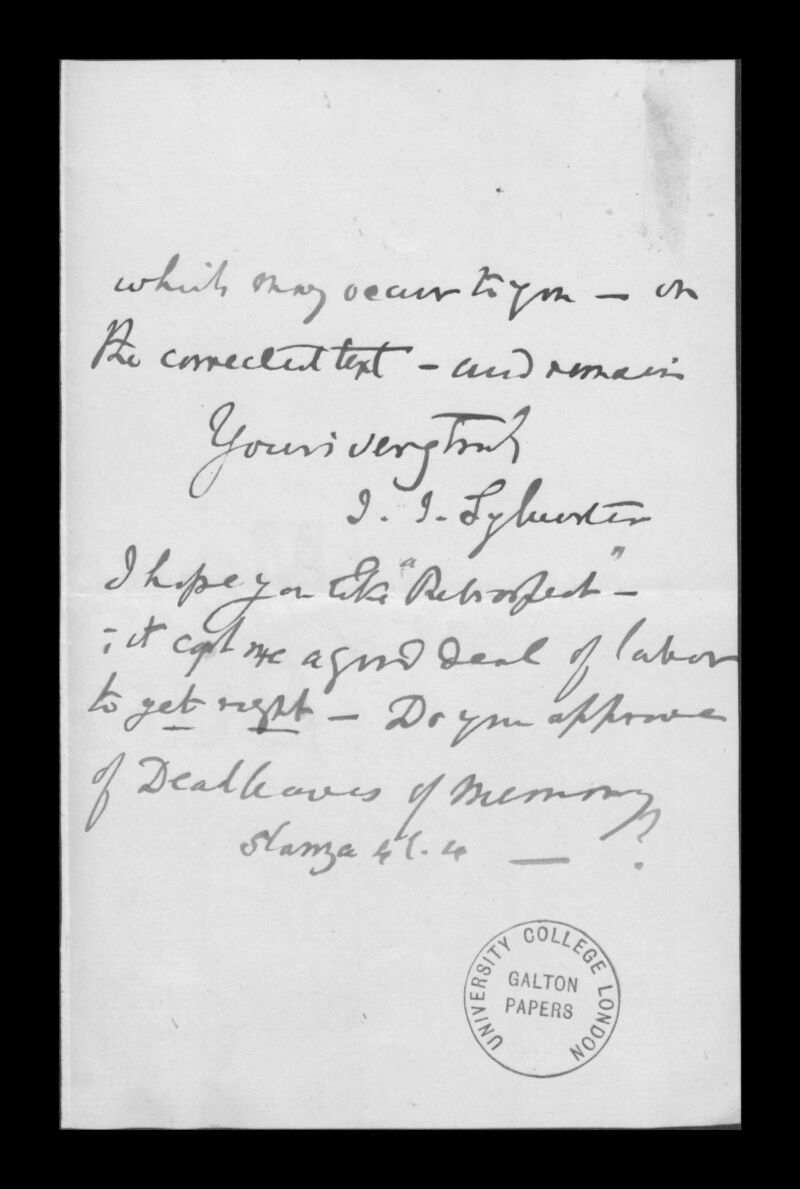 which may occur to you — on
the corrected text — and remain
Yours very truly
J. J. Sylvester
I hope you like "Retrospect" —
; it cost me a good deal of labor
to get right — Do you approve
of Dead leaves of Memory
Stanza 4 l. 4 — ?
UNIVERSITY COLLEGE LONDON
GALTON
PAPERS